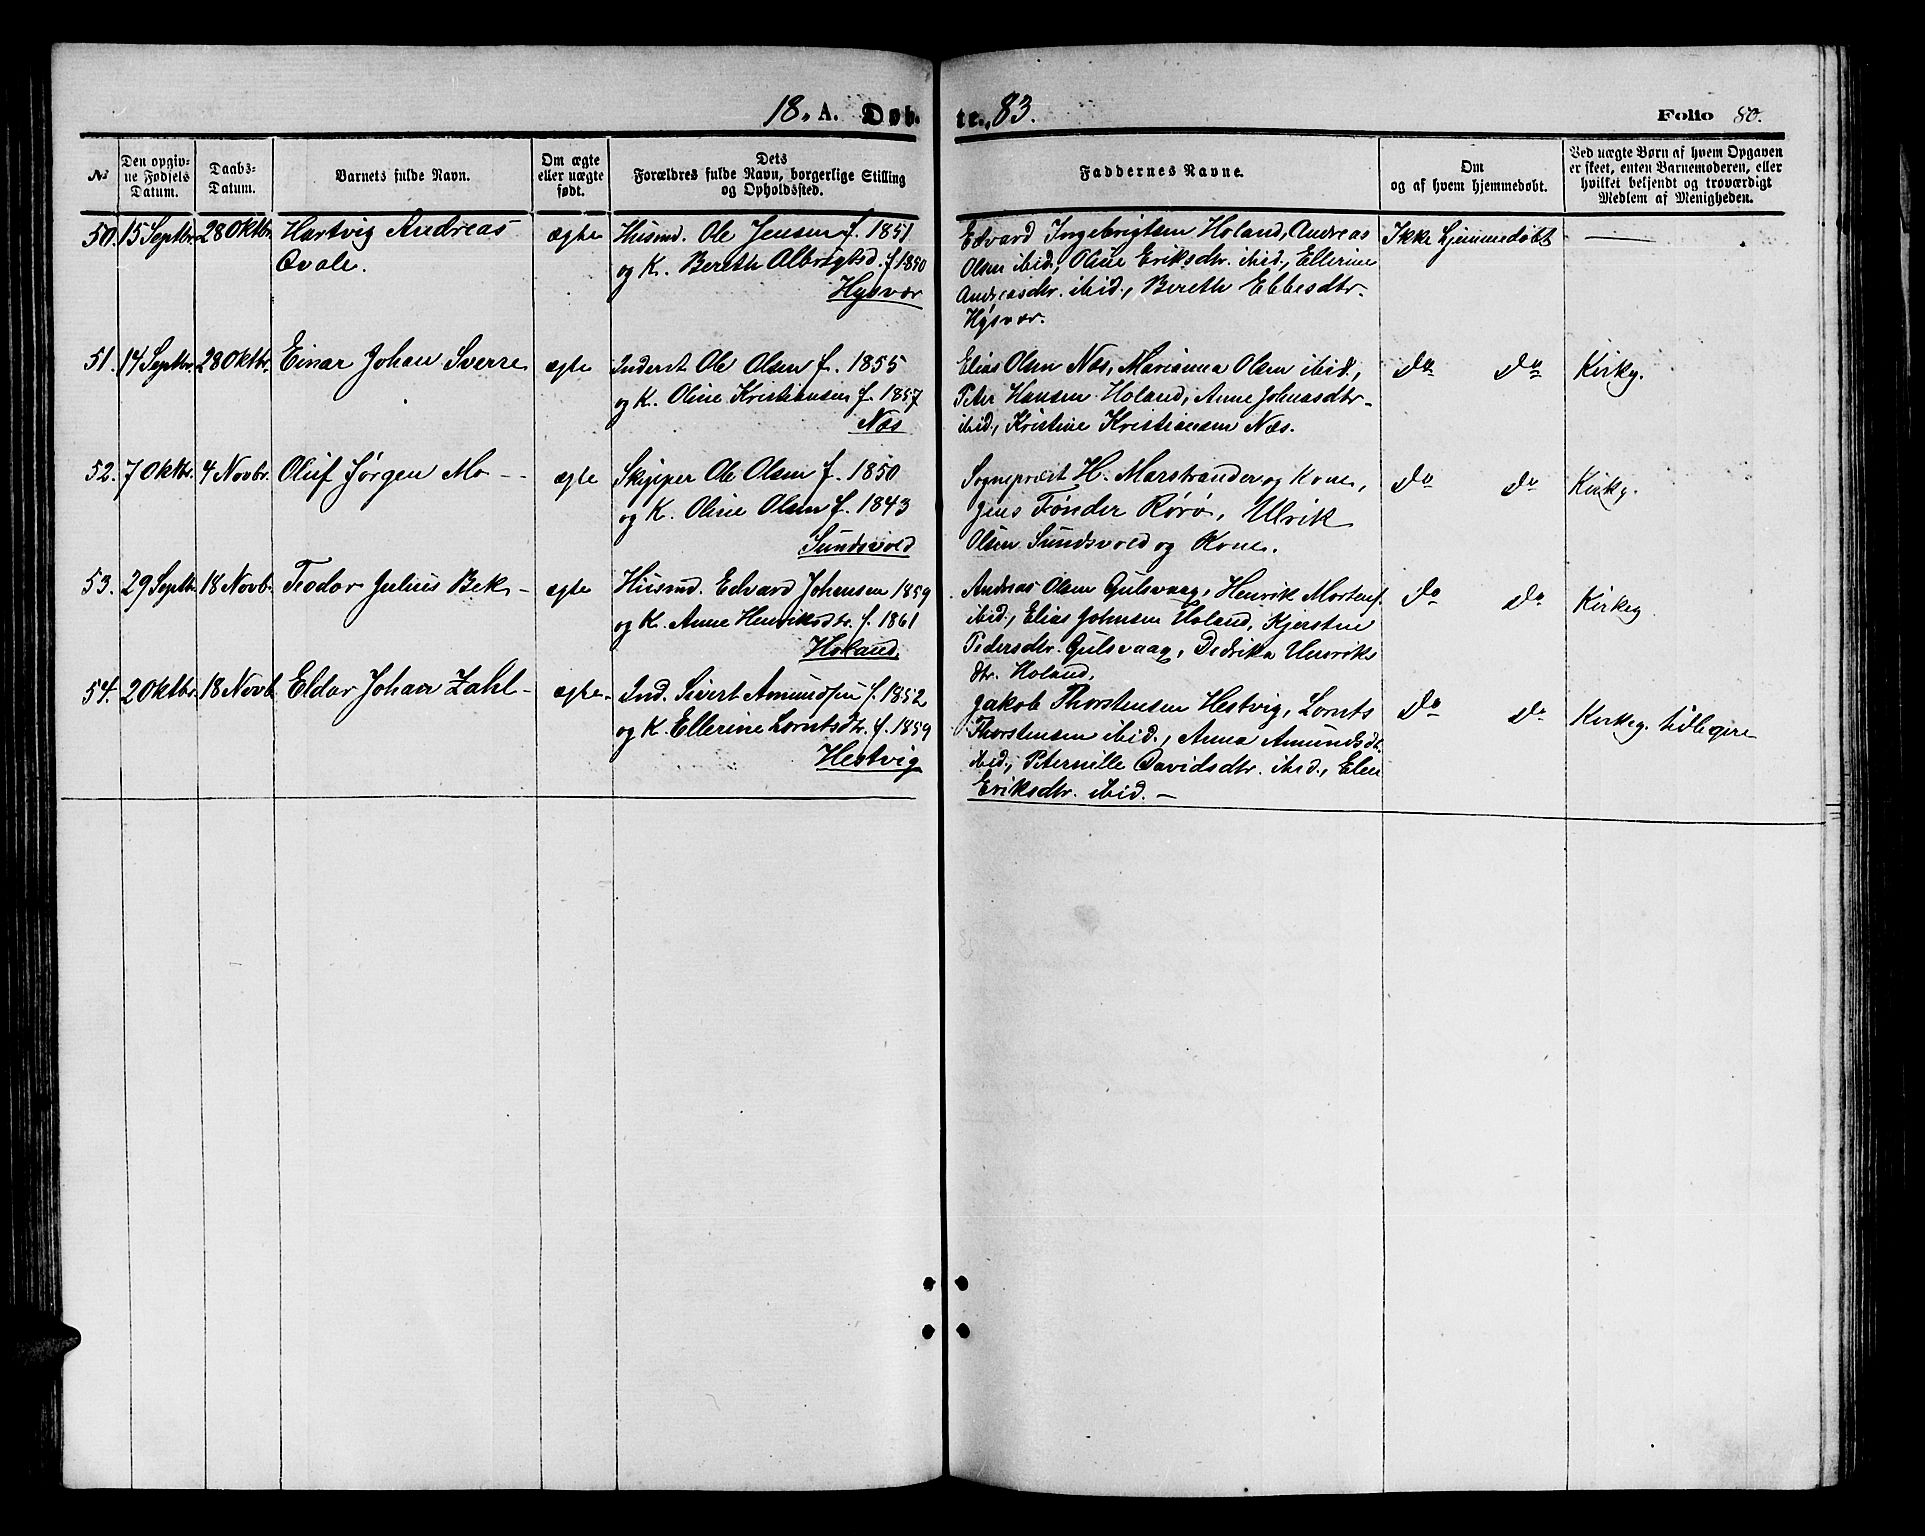 18. A. Døb- te. 83. Folio 80.
№
Den opgiv-
ne Fødsels
Datum.
Daabs-
Datum.
Barnets fulde Navn.
Om ægte
eller uægte
født.
Dets
Forældres fulde Navn, borgerlige Stilling
og Opholdssted.
Faddernes Navne.
Om
og af hvem hjemmedøbt.
Ved uægte Børn af hvem Opgaven
er skeet, enten Barnemoderen, eller
hvilket bekjendt og troværdigt
Medlem af Menigheden.
50. 15 Septbr. 28 Oktbr. Hartvig Andreas
Ovale.
ægte
Husmd. Ole Jensen f. 1851
og K. Bereth Albrigtsd. f 1850
Hysvær
Edvard Ingebrigtsen Holand, Andreas
Olsen ibid., Oline Eriksdtr. ibid., Ellerine
Andreasdtr. ibid., Bereth Ebbesdtr.
Hysvær.
Ikke hjemmedøbt
51. 14 Septbr. 28 Oktbr. Einar Johan Sverre
ægte
Inderst Ole Olsen f. 1855
og K. Oline Kristiansen f. 1857
Næs
Elias Olsen Næs, Marianna Olsen ibid.,
Peter Hansen Holand, Anne Johnasdtr-
ibid., Kristine Kristiansen Næs.
Do Do
Kirkg.
52. 7 Oktbr. 4 Novbr. Oluf Jørgen Mo - -
ægte
Skipper Ole Olsen f. 1850
og K. Oline Olsen f. 1843
Sundsvold
Sognepræst H. Marstrander og Kone,
Jens Tønder Rørø, Ulrik
Olsen Sundsvold og Kone.
Do Do
Kirkg.
53. 29 Septbr. 18 Novb. Teodor Julius Bek -
ægte
Husmd. Edvard Johensen 1859
og K. Anne Henriksdtr. f. 1861
Holand.
Andreas Olsen Gulsvaag, Henrik Mortens.
ibid., Elias Johnsen Holand, Kjersten
Pedersdtr. Gulsvaag, Dedrika Henriks
dtr. Holand.
Do Do
Kirkeg
54. 2 Oktbr. 18 Novb. Eldar Johan Zahl -
ægte -
Ind. Sivert Amundsen f. 1852
og K. Ellerine Lorntsdtr. f. 1859
Hestvig
Jakob Thorstensen Hestvig, Lornts
Thorstensen ibid., Anna Amundsdtr.
ibid., Peternille Davidsdtr. ibid., Elen
Eriksdtr. ibid. -
Do Do
Kirkeg. tidligere